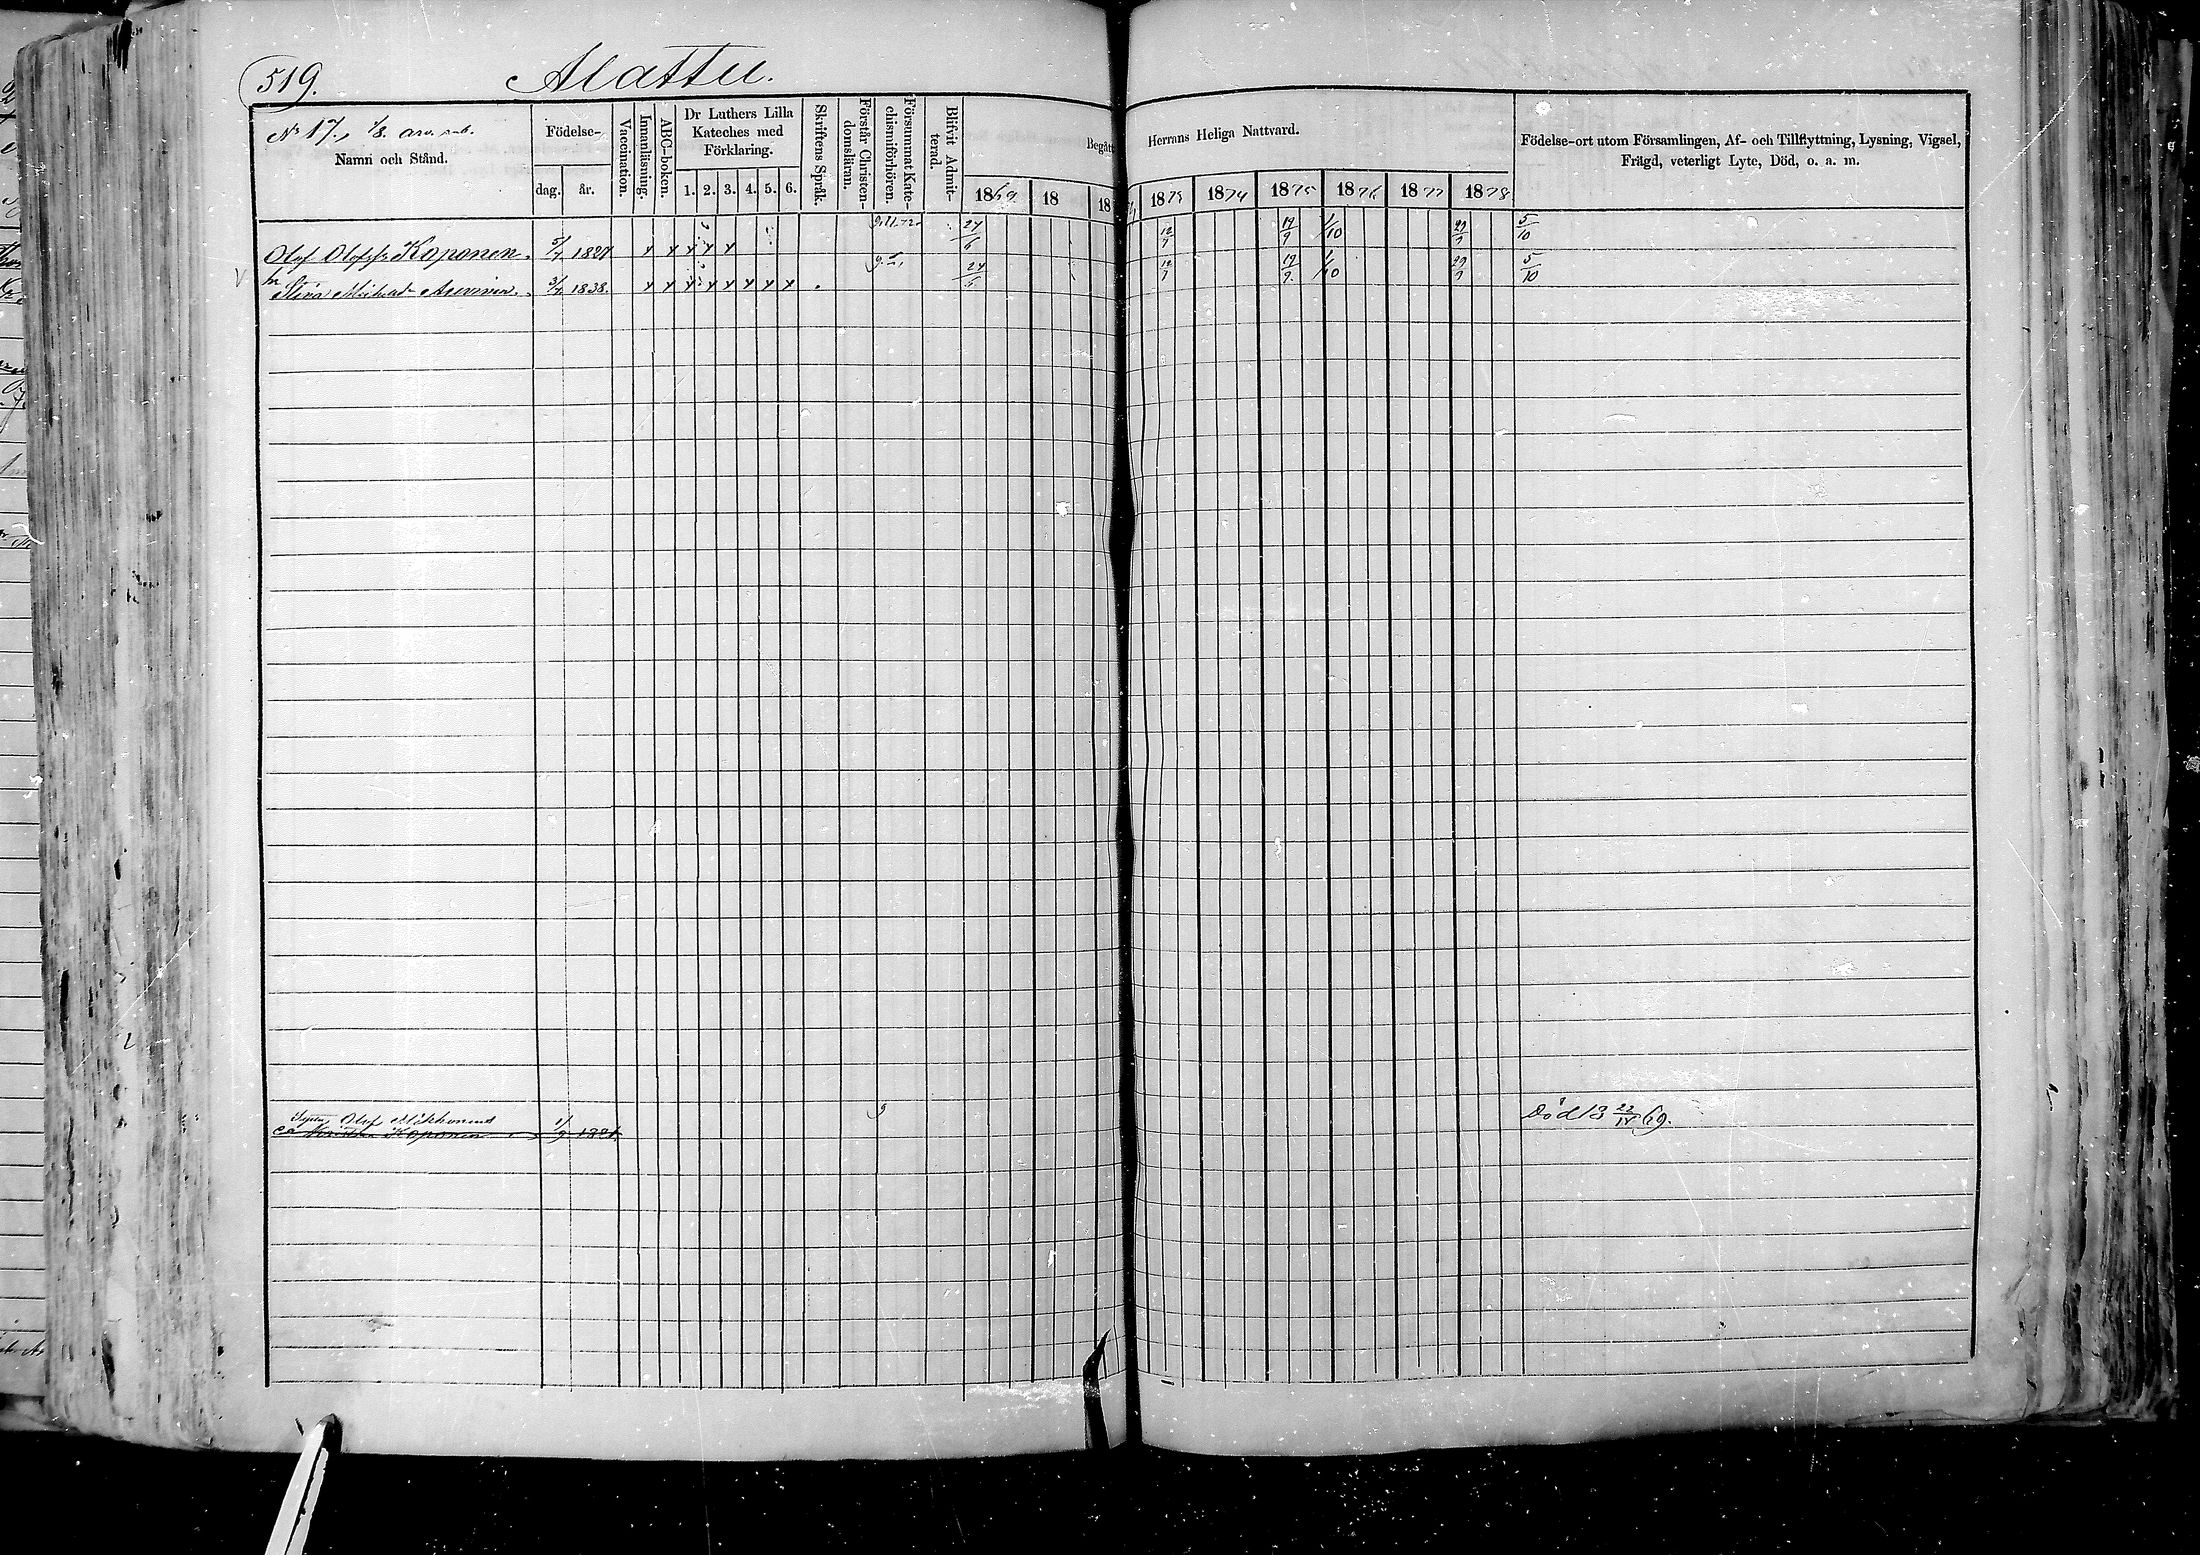 519. Alattu.
No 17, 1/8
Namn och Stånd.
Födelse-
dag. år.
Vaccination.
Innanläsning.
ABC-boken.
Dr Luthers Lilla
Kateches med
Förklaring.
1. 2. 3. 4. 5. 6.
Skriftens Språk.
Förstår Christen-
domsläran.
Försummat Kate-
chismiförhören.
Blifvit Admit-
terad.
Begått
Herrans Heliga Nattvard.
1869 18 18
1873 1874 1875 1876 1877 1878
Födelse-ort utom Församlingen, Af- och Tillflyttning, Lysning, Vigsel,
Frägd, veterligt Lyte, Död, o. a. m.
Olof Olofss Koponen 5/7 1827 x x x x x 24/6 12/7 19/9 1/10 29/9 5/10
hu Stina 3/4 1838. x x x x x x x x 24/6 12/7 19/9. 1/10 29/9 5/10
Olof
Koponen 1/9 1821 g Död 18 22/IV 69.